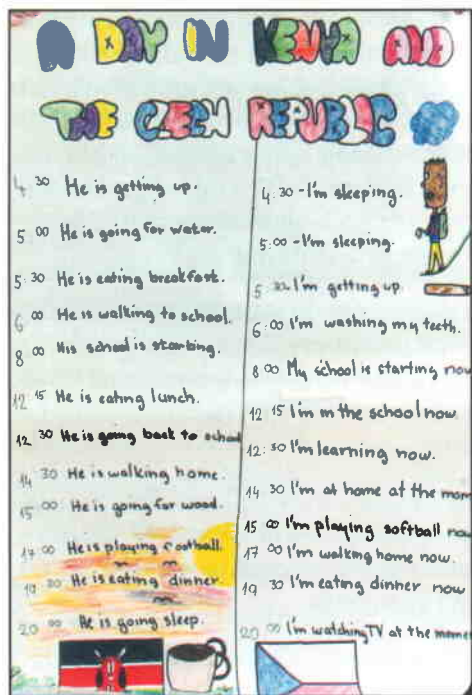 A DAY IN KENYA AND
THE CZECH REPUBLIC
4 30 He is getting up.
5 00 He is going for water.
5:30 He is eating breakfast.
6 00 He is walking to school.
8 00 His school is starting.
12:15 He is eating lunch.
12 30 He is going back to school
14 30 He is walking home.
15 00 He is going for wood.
17 00 He is playing football.
19 30 He is eating dinner.
20 00 He is going sleep.
4:30 - I'm sleeping.
5:00 - I'm sleeping.
5 I'm getting up.
6:00 I'm washing my teeth.
8 00 My school is starting now
12 15 I'm in the school now.
12:30 I'm learning now.
14 30 I'm at home at the mom
15 00 I'm playing softball now
17 00 I'm walking home now.
19 30 I'm eating dinner now
20 00 I'm watching TV at the mome